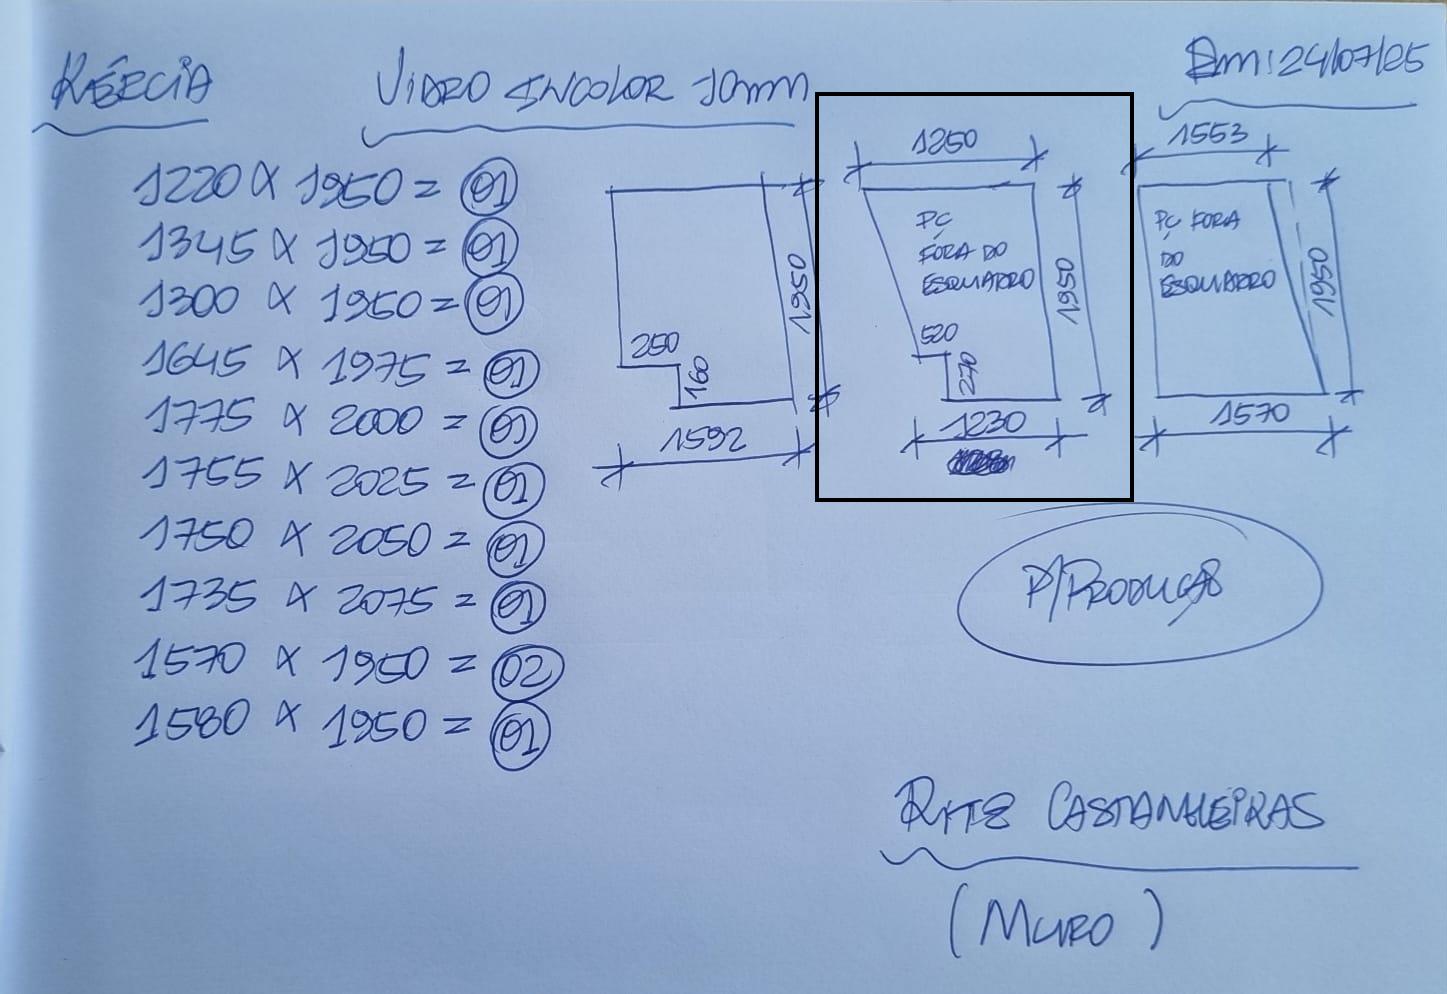 KÉRCIA
VIDRO INCOLOR 10mm
Em: 24/07/25
1220 X 1950 = 01
1345 X 1950 = 01
1300 X 1950 = 01
1645 X 1975 = 01
1775 X 2000 = 01
1755 X 2025 = 01
1750 X 2050 = 01
1735 X 2075 = 01
1570 X 1950 = 02
1580 X 1950 = 01
1950
250
160
1592
1250
PÇ
FORA DO
ESQUADRO
1950
520
270
1230
1553
PÇ FORA
DO
ESQUADRO
1950
1570
P/PRODUÇÃO
CASTANHEIRAS
(MURO)